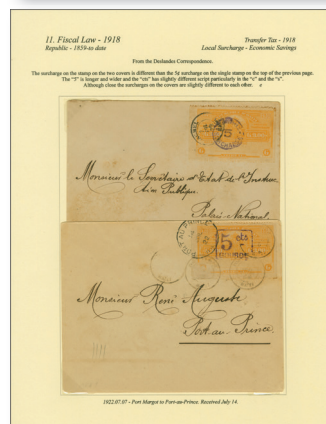 11. Fiscal Law - 1918
Transfer Tax - 1918
Republic - 1859-to date
Local Surcharge - Economic Savings
From the Deslandes Correspondence.
The surcharge on the stamp on the two covers is different than the 5¢ surcharge on the single stamp on the top of the previous page.
The "5" is longer and wider and the "cts" has slightly different script particularly in the "c" and the "s".
Although close the surcharges on the covers are slightly different to each other.
5
Monsieur le Secrétaire d'Etat de l'Instruc
tion Publique
Palais National
5 cts
Monsieur René Auguste
Port-au-Prince
1922.07.07 - Port Margot to Port-au-Prince. Received July 14.